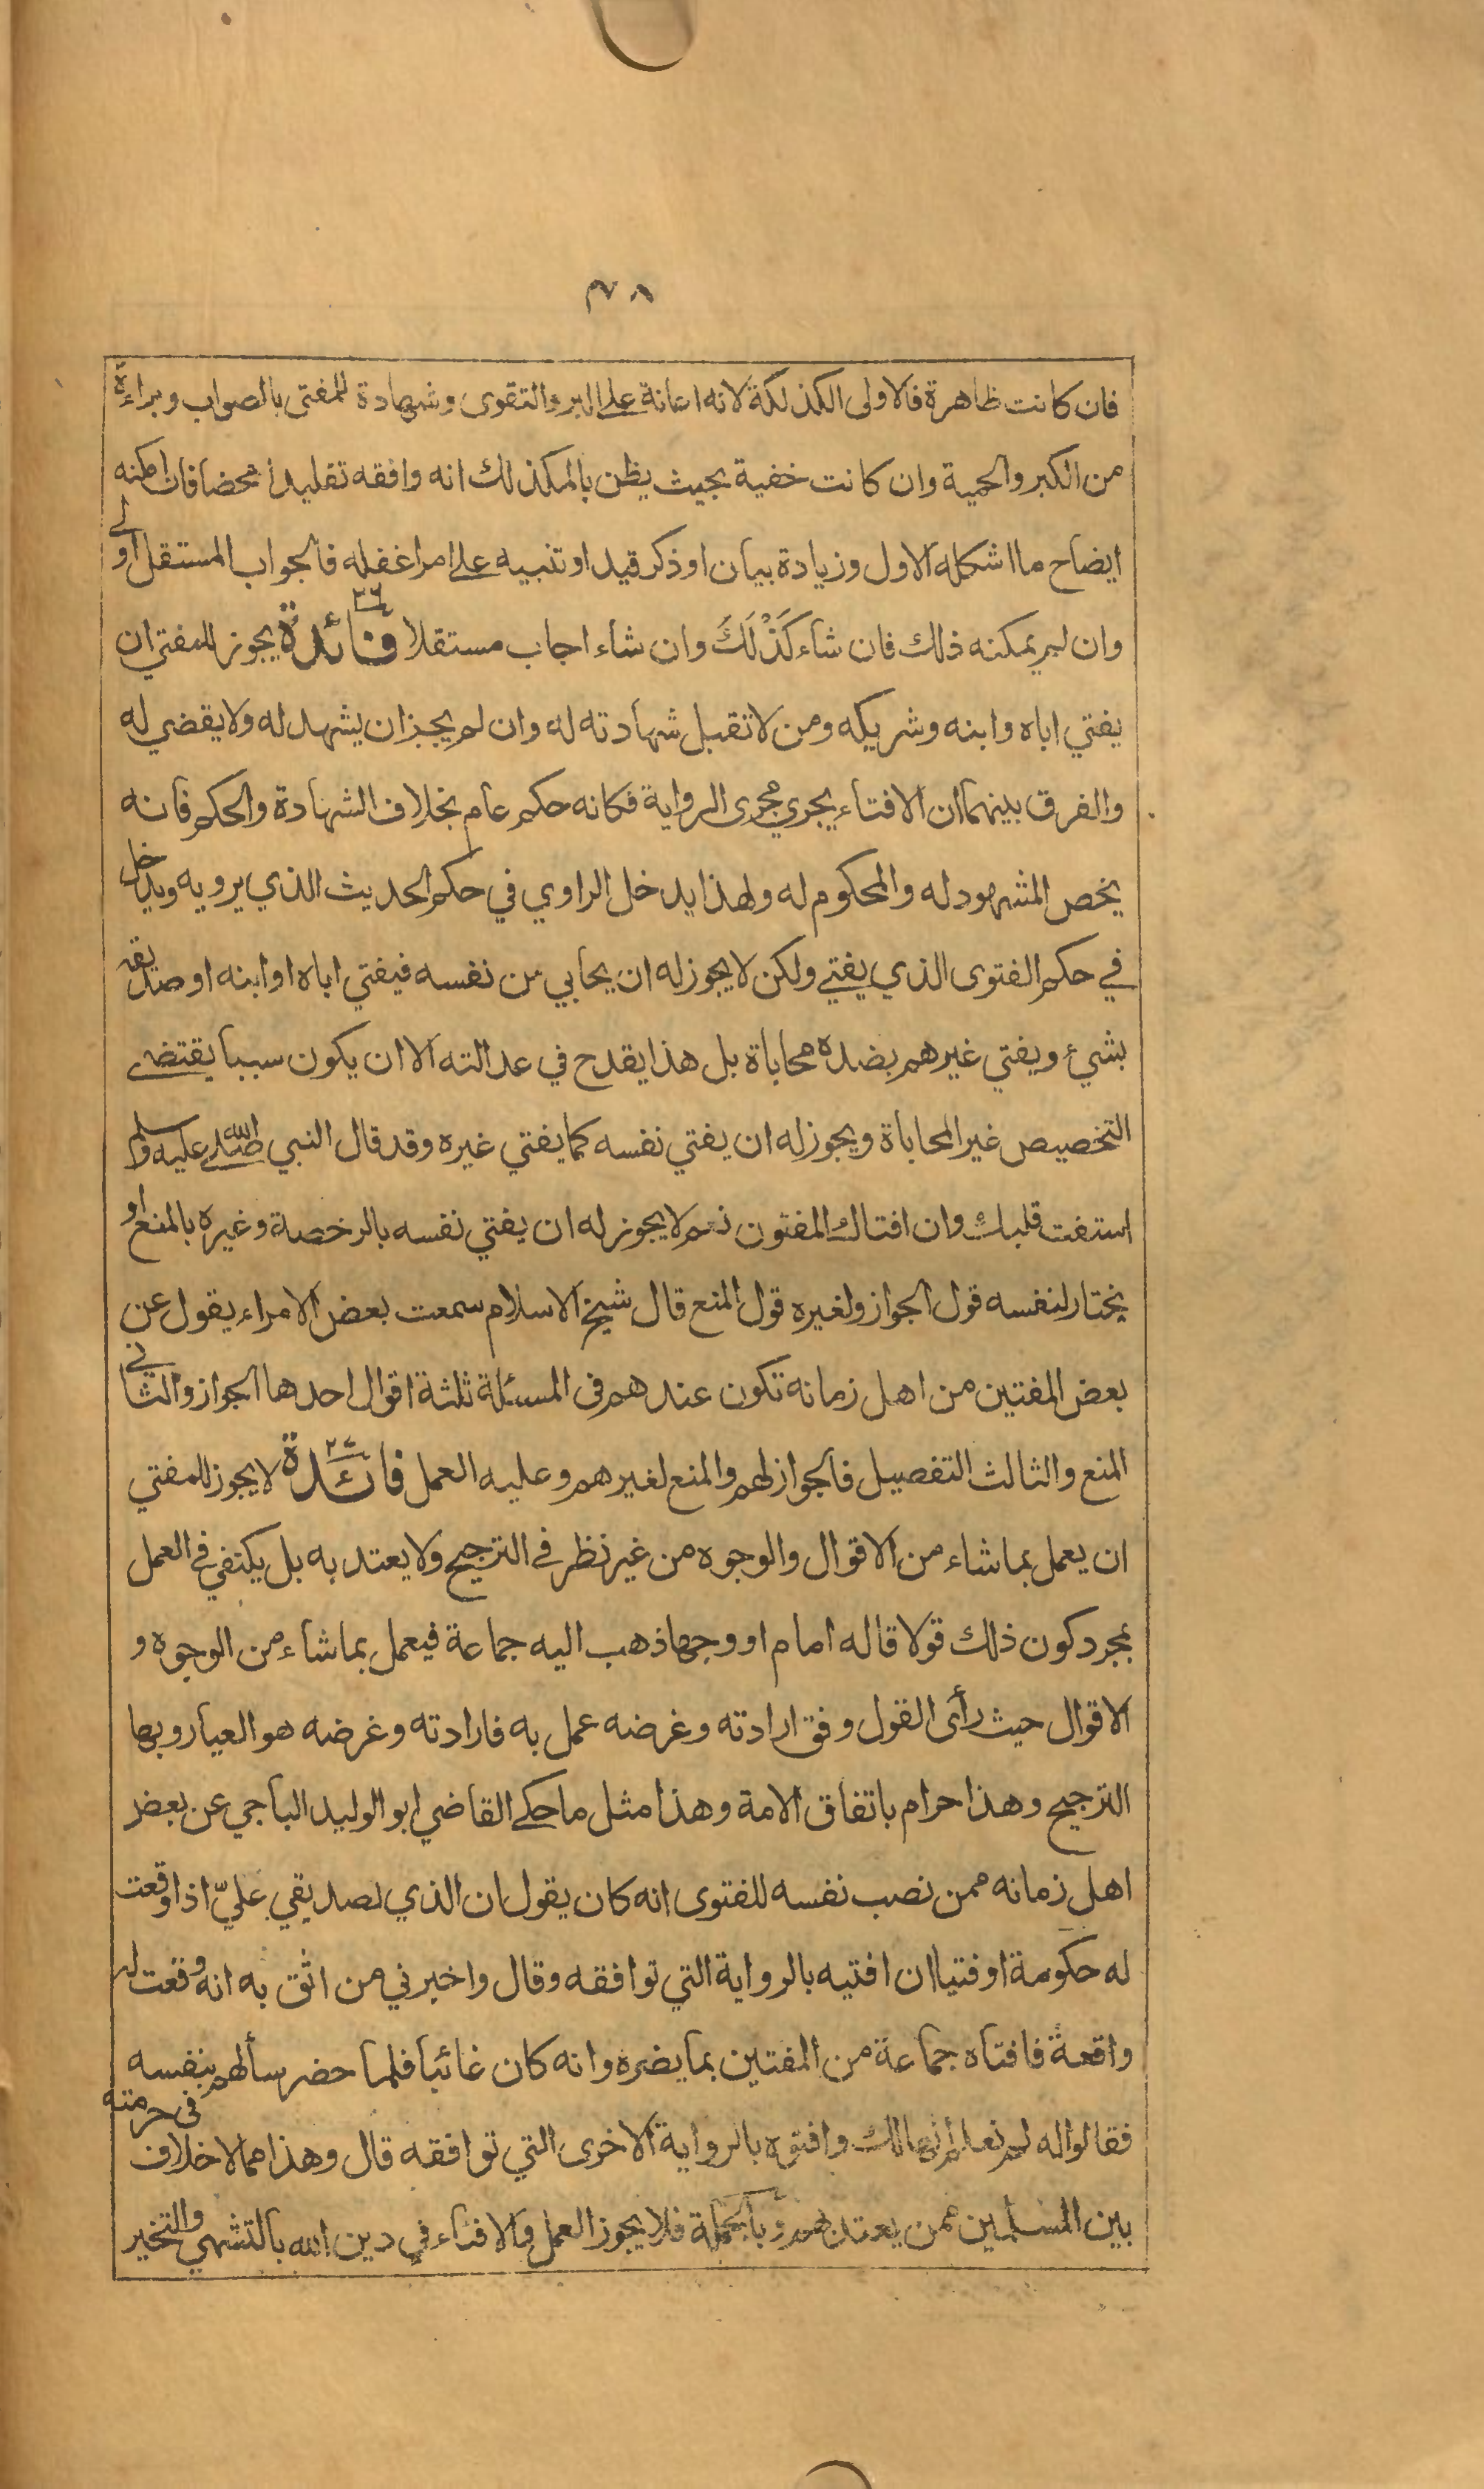 ٣٧٨
فان كانت ظاهرة فالاولى الكذلكة لانه اعانة على البر والتقوى وشهادة للمفتى بالصواب وبراءة
من الكبر والحمية وان كانت خفية بحيث يظن بالمكذلك انه وافقه تقليدا محضا فان امكنه
ايضاح ما اشكله الاول وزيادة بيان او ذكر قيد او تنبيه على امر اغفله فالجواب المستقل اولى
وان لم يمكنه ذلك فان شاء كَذْلَكَ وان شاء اجاب مستقلا فائدة ٣٦ يجوز للمفتي ان
يفتي اباه وابنه وشريكه ومن لا تقبل شهادته له وان لم يجز ان يشهد له ولا يقضي له
والفرق بينهما ان الافتاء يجري مجرى الرواية فكانه حكم عام بخلاف الشهادة والحكم فانه
يخص المشهود له والمحكوم له ولهذا يدخل الراوي في حكم الحديث الذي يرويه ويدخل
في حكم الفتوى الذي يفتي ولكن لا يجوز له ان يحابي من نفسه فيفتي اباه او ابنه او صديقه
بشئ ويفتي غيرهم بضده محاباة بل هذا يقدح في عدالته الا ان يكون سببا يقتضي
التخصيص غير المحاباة ويجوز له ان يفتي نفسه كما يفتي غيره وقد قال النبي صلى الله عليه وسلم
استفت قلبك وان افتاك المفتون نعم لا يجوز له ان يفتي نفسه بالرخصة وغيره بالمنع او
يختار لنفسه قول الجواز ولغيره قول المنع قال شيخ الاسلام سمعت بعض الامراء يقول عن
بعض المفتين من اهل زمانه تكون عندهم فى المسئلة ثلثة اقوال احدها الجواز والثاني
المنع والثالث التفصيل فالجواز لهم والمنع لغيرهم وعليه العمل فائدة ٣٧ لا يجوز للمفتي
ان يعمل بما شاء من الاقوال والوجوه من غير نظر فى الترجيح ولا يعتد به بل يكتفي فى العمل
بمجرد كون ذلك قولا قاله امام او وجها ذهب اليه جماعة فيعمل بما شاء من الوجوه و
الاقوال حيث رأى القول وفق ارادته وغرضه عمل به فارادته وغرضه هو العيار وبها
الترجيح وهذا حرام باتفاق الامة وهذا مثل ما حكى القاضي ابو الوليد الباجي عن بعض
اهل زمانه ممن نصب نفسه للفتوى انه كان يقول ان الذي لصديقي عليّ اذا وقعت
له حكومة او فتيا ان افتيه بالرواية التي توافقه وقال واخبرني من اثق به انه وقعت له
واقعة فافتاه جماعة من المفتين بما يضره وانه كان غائبا فلما حضر سألهم بنفسه
فقالوا له لم نعلم انها لك وافتوه بالرواية الاخرى التي توافقه قال وهذا مما لا خلاف
بين المسلمين ممن يعتد بهم فى حرمته وبالجملة فلا يجوز العمل والافتاء في دين الله بالتشهي والتخير